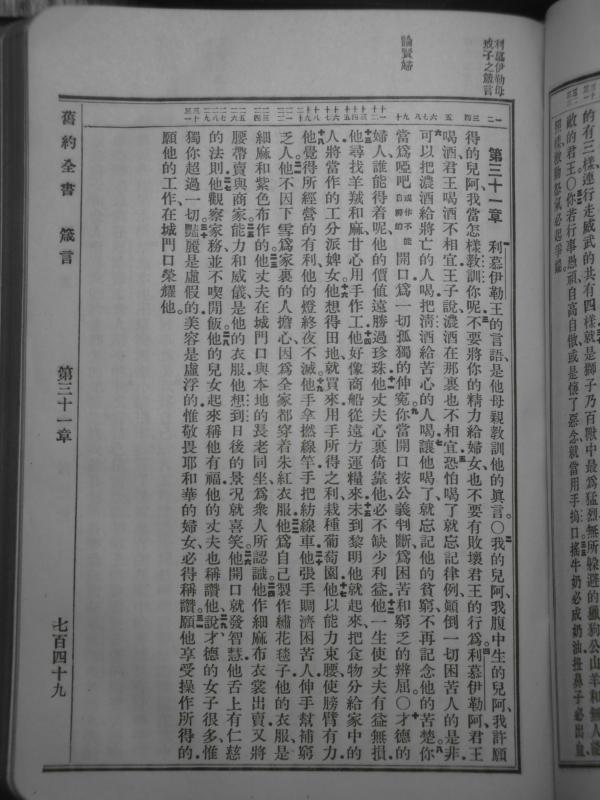 的有三樣連行走威武的共有四樣就是獅子乃百獸中最爲猛烈無所躱避的獵狗公山羊和無人能
敵的君王○你若行事愚頑自高自傲或是懷了惡念就當用手摀口搖牛奶必成奶油扭鼻子必出血
照樣激動怒氣必起爭端
利慕伊勒母
戒子之箴言
論賢婦
第三十一章 利慕伊勒王的言語是他母親教訓他的眞言○我的兒阿我腹中生的兒阿我許願
得的兒阿我當怎樣教訓你呢不要將你的精力給婦女也不要有敗壞君王的行爲利慕伊勒阿君王
喝酒君王喝酒不相宜王子說濃酒在那裏也不相宜恐怕喝了就忘記律例顛倒一切困苦人的是非
可以把濃酒給將亡的人喝把清酒給苦心的人喝讓他喝了就忘記他的貧窮不再記念他的苦楚你
當爲啞吧或作不能自辯的開口爲一切孤獨的伸寃你當開口按公義判斷爲困苦和窮乏的辨屈○才德的
婦人誰能得着呢他的價值遠勝過珍珠他丈夫心裏倚靠他必不缺少利益他一生使丈夫有益無損
他尋找羊羢和麻甘心用手作工他好像商船從遠方運糧來未到黎明他就起來把食物分給家中的
人將當作的工分派婢女他想得田地就買來用手所得之利栽種葡萄園他以能力束腰使膀臂有力
他覺得所經營的有利他的燈終夜不滅他手拿撚線竿手把紡線車他張手賙濟困苦人伸手幫補窮
乏人他不因下雪爲家裏的人擔心因爲全家都穿着朱紅衣服他爲自己製作繡花毯子他的衣服是
細麻和紫色布作的他丈夫在城門口與本地的長老同坐爲衆人所認識他作細麻布衣裳出賣又將
腰帶賣與商家能力和威儀是他的衣服他想到日後的景況就喜笑他開口就發智慧他舌上有仁慈
的法則他觀察家務並不喫閒飯他的兒女起來稱他有福他的丈夫也稱讚他說才德的女子很多惟
獨你超過一切豔麗是虛假的美容是虛浮的惟敬畏耶和華的婦女必得稱讚願他享受操作所得的
願他的工作在城門口榮耀他
舊約全書 箴言 第三十一章 七百四十九